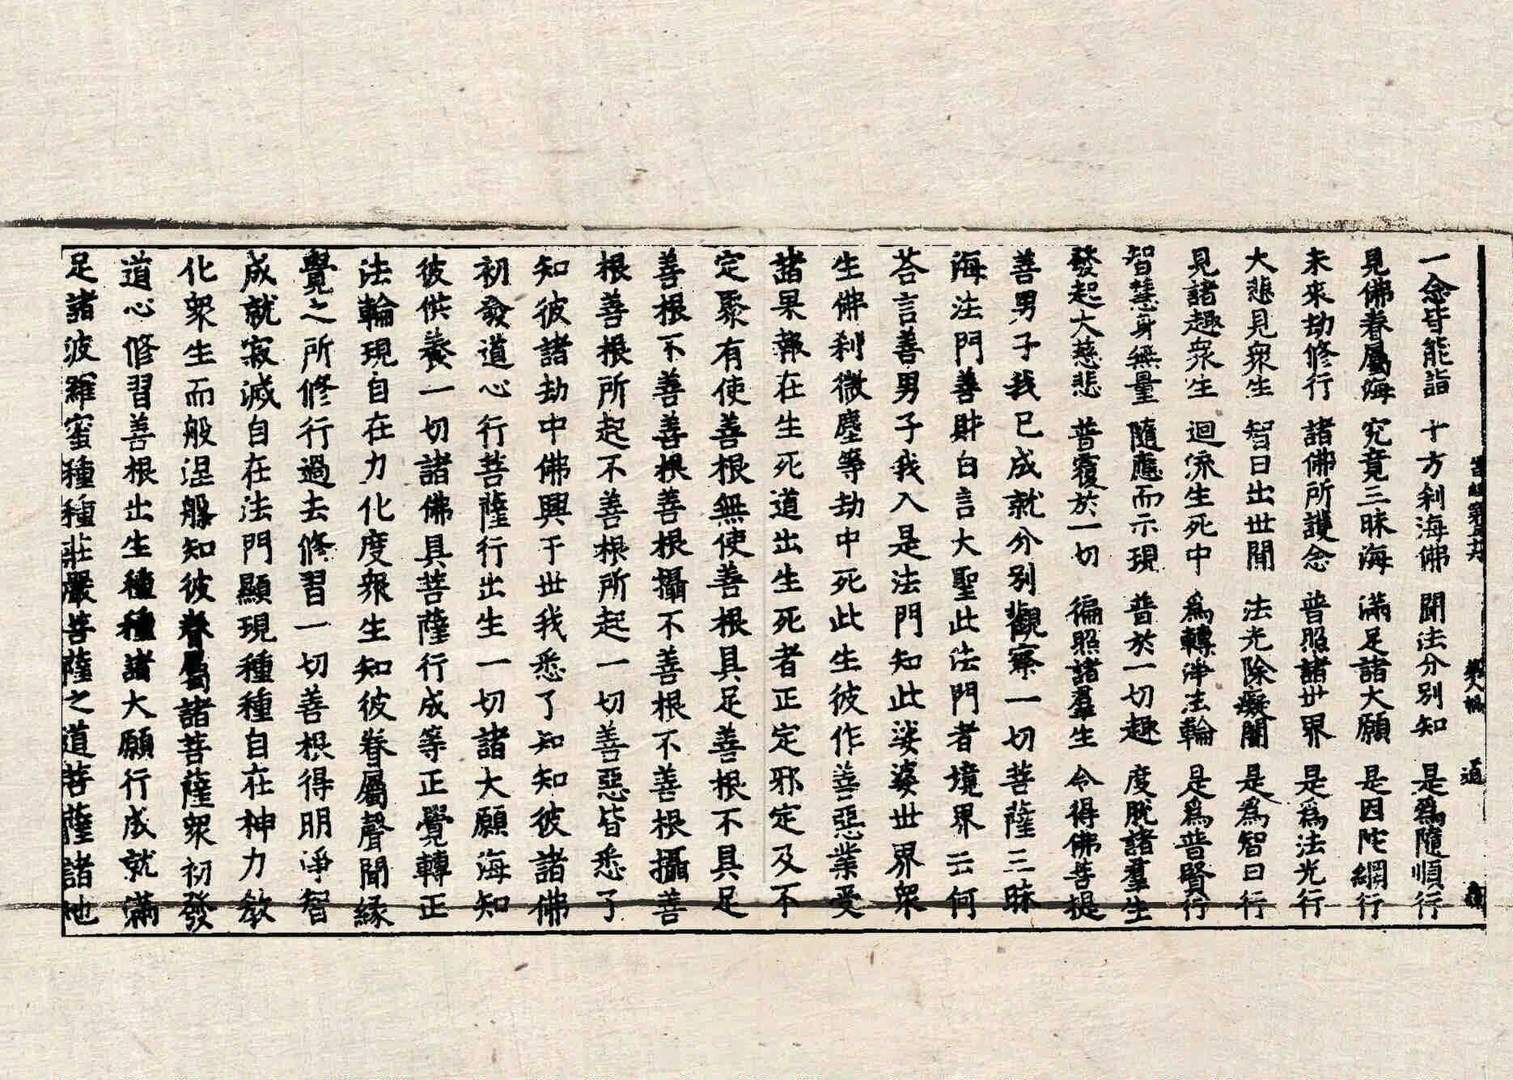 一念皆能詣　十方刹海佛　聞法分别知　是爲隨順行
見佛眷屬海　究竟三昧海　滿足諸大願　是因陀網行
未來劫修行　諸佛所護念　普照諸世界　是爲法光行
大悲見衆生　智日出世間　法光除癡闇　是爲智日行
見諸趣衆生　迴流生死中　爲轉淨法輪　是爲普賢行
智慧身無量　隨應而示現　普於一切趣　度脫諸羣生
發起大慈悲　普覆於一切　徧照諸羣生　令得佛菩提
善男子我已成就分别觀察一切菩薩三昧
海法門善財白言大聖此法門者境界云何
荅言善男子我入是法門知此娑婆世界衆
生佛刹微塵等劫中死此生彼作善惡業受
諸果報在生死道出生死者正定邪定及不
定聚有使善根無使善根具足善根不具足
善根不善善根善根攝不善根不善根攝善
根善根所起不善根所起一切善惡皆悉了
知彼諸劫中佛興于世我悉了知知彼諸佛
初發道心行菩薩行出生一切諸大願海知
彼供養一切諸佛具菩薩行成等正覺轉正
法輪現自在力化度衆生知彼眷屬聲聞緣
覺之所修行過去修習一切善根得明淨智
成就寂滅自在法門顯現種種自在神力敎
化衆生而般涅槃知彼眷屬諸菩薩衆初發
道心修習善根出生種種諸大願行成就滿
足諸波羅蜜種種莊嚴菩薩之道菩薩諸地